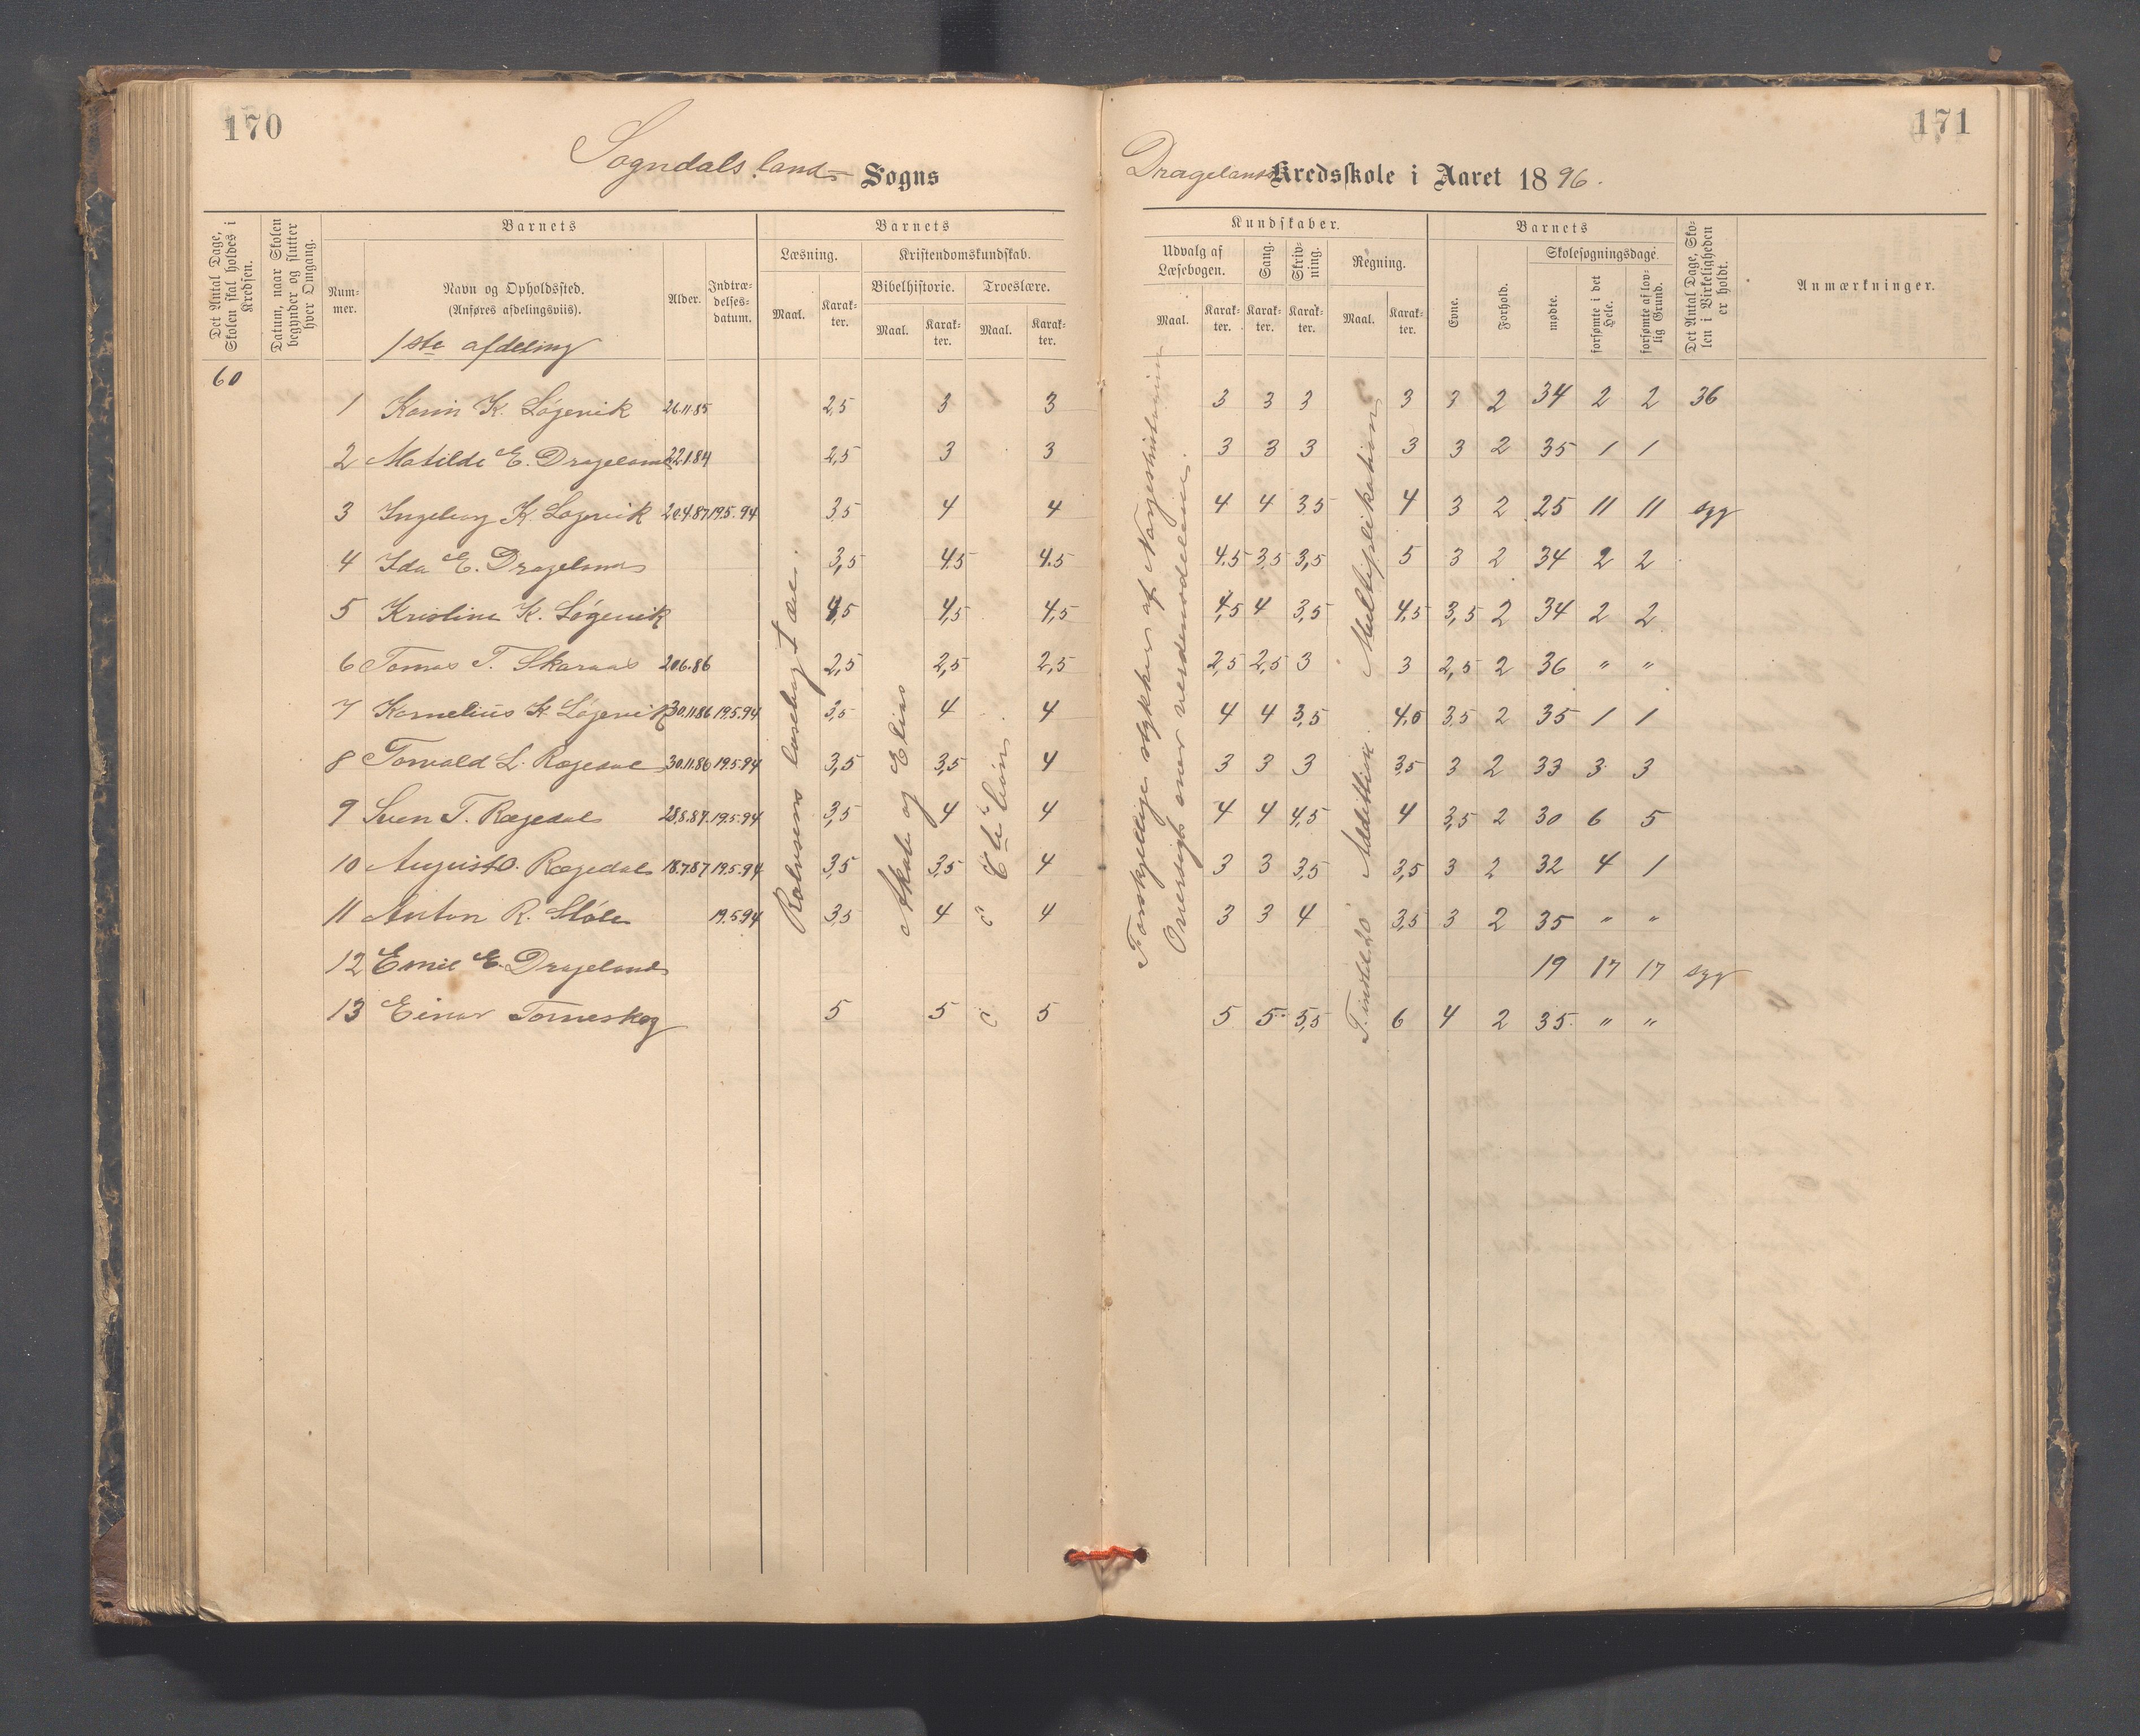 170
Sogndals land- Sogns
Det Antal Dage, Skolen skal holdes i Kredsen.
Datum, naar Skolen begynder og slutter hver Omgang.
Barnets
Num-mer.
Navn og Opholdssted.
(Anføres afdelingsviis).
1ste afdeling
Alder.
Indtræ-delses-datum.
Barnets
Læsning.
Maal.
Karak-ter.
Kristendomskundskab.
Bibelhistorie.
Maal.
Karak-ter.
Troeslære.
Maal.
Karak-ter.
60
1 Karin K. Løgevik 26.11.85 2,5 3 3
2 Matilde E. Drageland 22.1.84 2,5 3 3
3 Ingeborg K. Løgevik 20.4.87 19.5.94 3,5 4 4
4 Ida E. Drageland 3,5 4.5 4.5
5 Kristine K. Løgevik 4,5 4,5 4,5
6 Tomas T. Skaraas 20.6.86 2,5 2,5 2,5
7 Kornelius K Løgevik 30.11.86 19.5.94 3,5 4 4
8 Torvald L. Rægedal 30.11.86 19.5.94 3,5 3,5 4
9 Sven T. Rægedal 28.8.87. 19.5.94 3,5 4 4
10 August O. Rægedal 18.7.87 19.5.94 3,5 3,5 4
11 Anton R. Støle 19.5.94 3,5 4 4
12 Emil E. Drageland
13 Einar Tomeskog 5 5 5
Rolvsens læsebog
Akab og Elias
171
Dragelands Kredsskole i Aaret 1896.
Kundskaber.
Udvalg af Læsebogen.
Maal.
Karak-ter.
Sang.
Karak-ter.
Skriv-ning.
Karak-ter.
Regning.
Maal.
Karak-ter.
Barnets
Evne.
Forhold.
Skolesøgningsdage.
mødte.
forsømte i det Hele.
forsømte af lov-lig Grund.
Det Antal Dage, Sko-len i Virkeligheden er holdt.
Anmærkninger.
3 3 3 3 3 2 34 2 2 36
3 3 3 3 3 2 35 1 1
4 4 3,5 4 3 2 25 11 11 syg
4.5 3,5 3,5 5 3 2 34 2 2
4,5 4 3,5 4,5 3,5 2 34 2 2
2,5 2,5 3 3 2,5 2 36 " "
4 4 3,5 4,0 3,5 2 35 1 1
3 3 3 3,5 3 2 33 3 3
4 4 4,5 4 3,5 2 30 6 5
3 3 3,5 3,5 3 2 32 4 1
3 3 4 3,5 3 2 35 " "
19 17 17 syg
5 5 5,5 6 4 2 35 " "
Forskjellige stykker af Norgeshistorien
Oversigt over verdensdelene.
Addition. Multiplikation